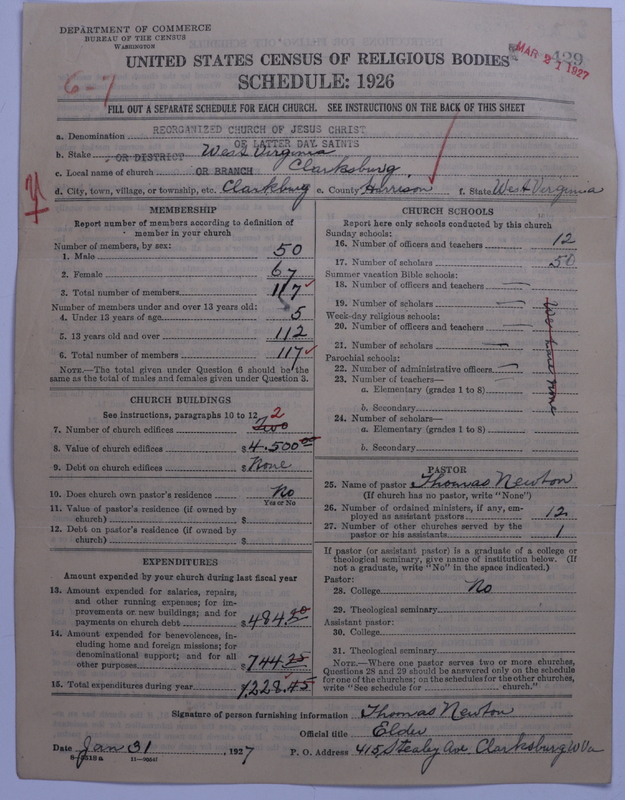 DEPARTMENT OF COMMERCE
BUREAU OF THE CENSUS
WASHINGTON
429
MAR 21 1927
UNITED STATES CENSUS OF RELIGIOUS BODIES
SCHEDULE: 1926
6-7
FILL OUT A SEPARATE SCHEDULE FOR EACH CHURCH. SEE INSTRUCTIONS ON THE BACK OF THIS SHEET
a. Denomination REORGANIZED CHURCH OF JESUS CHRIST
OF LATTER DAY SAINTS
b. Stake , OR DISTRICT West Virginia
c. Local name of church OR BRANCH Clarksburg.
d. City, town, village, or township, etc. Clarksburg e. County Harrison f. State West Virginia
MEMBERSHIP
Report number of members according to definition of member in your church
Number of members, by sex:
1. Male 50
2. Female 67
3. Total number of members 117
Number of members under and over 13 years old:
4. Under 13 years of age 5
5. 13 years old and over 112
6. Total number of members 117
NOTE.—The total given under Question 6 should be the same as the total of males and females given under Question 3.
CHURCH BUILDINGS
See instructions, paragraphs 10 to 12
7. Number of church edifices Two 2
8. Value of church edifices $ 4.500 00
9. Debt on church edifices $ None
10. Does church own pastor's residence No
Yes or No
11. Value of pastor's residence (if owned by church) $
12. Debt on pastor's residence (if owned by church) $
EXPENDITURES
Amount expended by your church during last fiscal year
13. Amount expended for salaries, repairs, and other running expenses; for improvements or new buildings; and for payments on church debt $ 484.20
14. Amount expended for benevolences, including home and foreign missions; for denominational support; and for all other purposes $ 744.25
15. Total expenditures during year 1228.45
CHURCH SCHOOLS
Report here only schools conducted by this church
Sunday schools:
16. Number of officers and teachers 12
17. Number of scholars 50
Summer vacation Bible schools:
18. Number of officers and teachers —
19. Number of scholars —
Week-day religious schools:
20. Number of officers and teachers —
21. Number of scholars —
Parochial schools:
22. Number of administrative officers —
23. Number of teachers—
a. Elementary (grades 1 to 8)
b. Secondary
24. Number of scholars—
a. Elementary (grades 1 to 8)
b. Secondary
We have none
PASTOR
25. Name of pastor Thomas Newton
(If church has no pastor, write "None")
26. Number of ordained ministers, if any, employed as assistant pastors 12
27. Number of other churches served by the pastor or his assistants 1
If pastor (or assistant pastor) is a graduate of a college or theological seminary, give name of institution below. (If not a graduate, write "No" in the space indicated.)
Pastor:
28. College No
29. Theological seminary
Assistant pastor:
30. College
31. Theological seminary
NOTE.—Where one pastor serves two or more churches, Questions 28 and 29 should be answered only on the schedule for one of the churches; on the schedules for the other churches, write "See schedule for church."
Signature of person furnishing information Thomas Newton
Official title Elder
Date Jan 31, 1927 P. O. Address 415, Stealey Ave. Clarksburg W Va